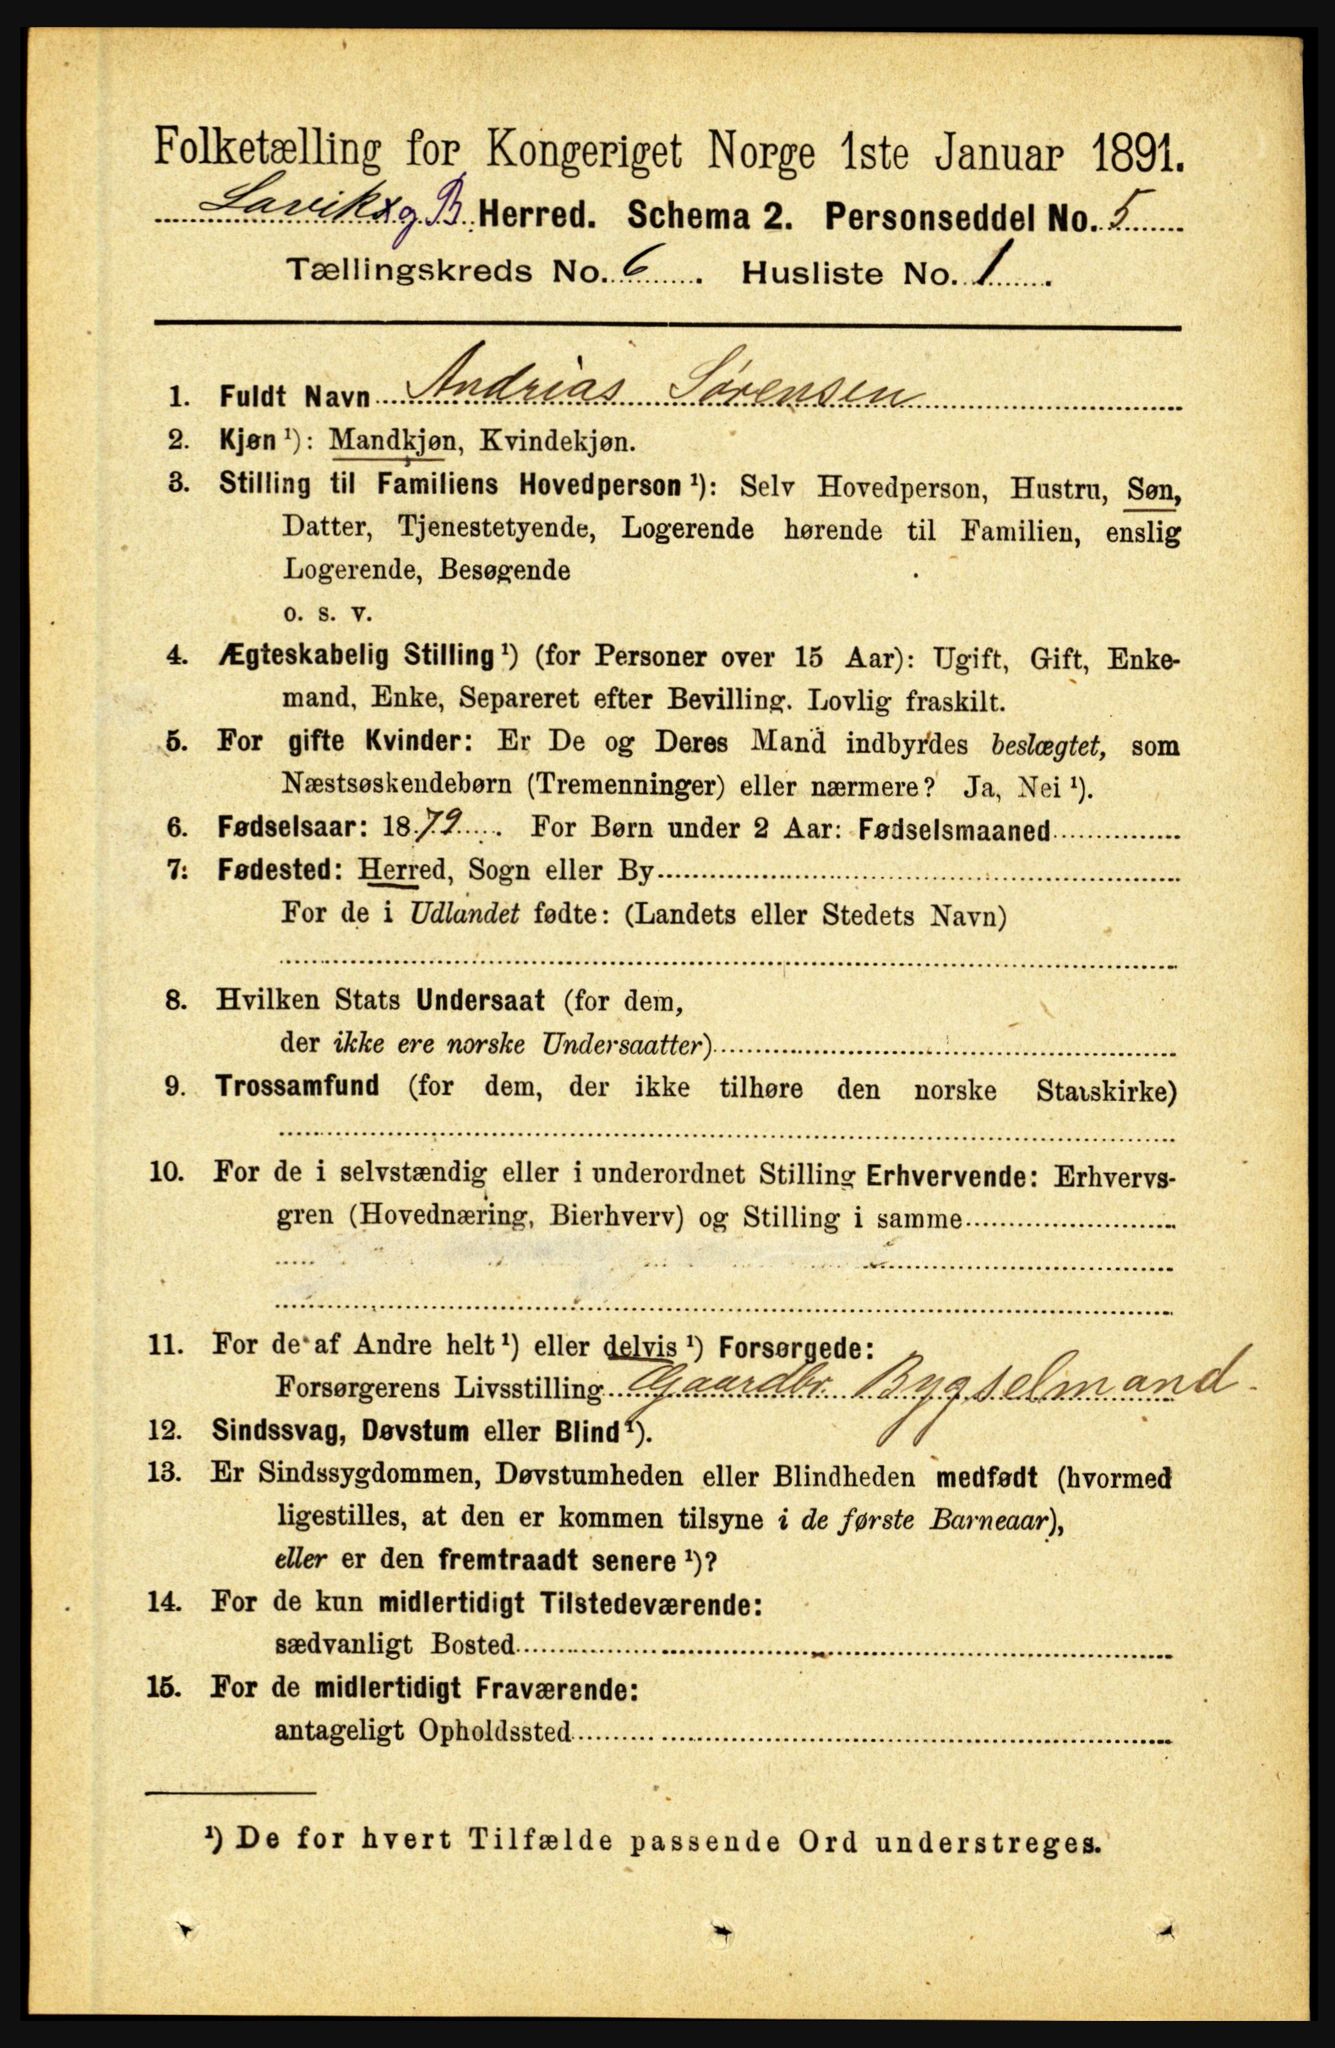 Folketælling for Kongeriget Norge 1ste Januar 1891.
Lavik og B. Herred. Schema 2. Personseddel No. 5
Tællingskreds No. 6. Husliste No. 1.
1. Fuldt Navn Andrias Sørensen
2. Kjøn ¹): Mandkjøn, Kvindekjøn.
3. Stilling til Familiens Hovedperson ¹): Selv Hovedperson, Hustru, Søn,
Datter, Tjenestetyende, Logerende hørende til Familien, enslig
Logerende, Besøgende
o. s. v.
4. Ægteskabelig Stilling ¹) (for Personer over 15 Aar): Ugift, Gift, Enke-
mand, Enke, Separeret efter Bevilling. Lovlig fraskilt.
5. For gifte Kvinder: Er De og Deres Mand indbyrdes beslægtet, som
Næstsøskendebørn (Tremenninger) eller nærmere? Ja, Nei ¹).
6. Fødselsaar: 1879. For Børn under 2 Aar: Fødselsmaaned
7. Fødested: Herred, Sogn eller By
For de i Udlandet fødte: (Landets eller Stedets Navn)
8. Hvilken Stats Undersaat (for dem,
der ikke ere norske Undersaatter)
9. Trossamfund (for dem, der ikke tilhøre den norske Statskirke)
10. For de i selvstændig eller i underordnet Stilling Erhvervende: Erhvervs-
gren (Hovednæring, Bierhverv) og Stilling i samme
11. For de af Andre helt ¹) eller delvis ¹) Forsørgede:
Forsørgerens Livsstilling Gaardbr. Bygselmand.
12. Sindssvag, Døvstum eller Blind ¹).
13. Er Sindssygdommen, Døvstumheden eller Blindheden medfødt (hvormed
ligestilles, at den er kommen tilsyne i de første Barneaar),
eller er den fremtraadt senere ¹)?
14. For de kun midlertidigt Tilstedeværende:
sædvanligt Bosted
15. For de midlertidigt Fraværende:
antageligt Opholdssted
¹) De for hvert Tilfælde passende Ord understreges.